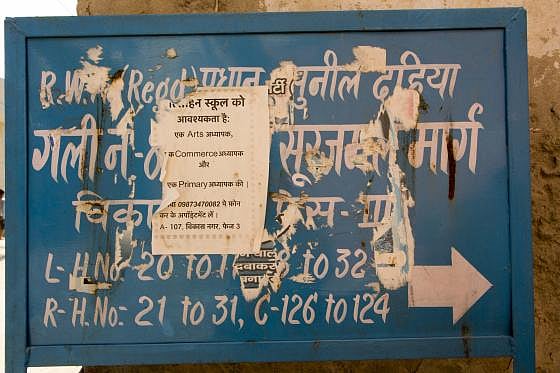 R.W. (Regd) प्रधान सुनील दहिया
गली नं- सूरजमल मार्ग
विका
L-H.No- 20 to 32
R-H.No- 21 to 31, C-126 to 124
स्कूल को
आवश्यकता है:
एक Arts अध्यापक,
क Commerce अध्यापक
और
एक Primary अध्यापक की।
09873470082 पे फोन
कर के अपॉइंटमेंट लें।
A- 107, विकास नगर, फेज 3
दबाकर